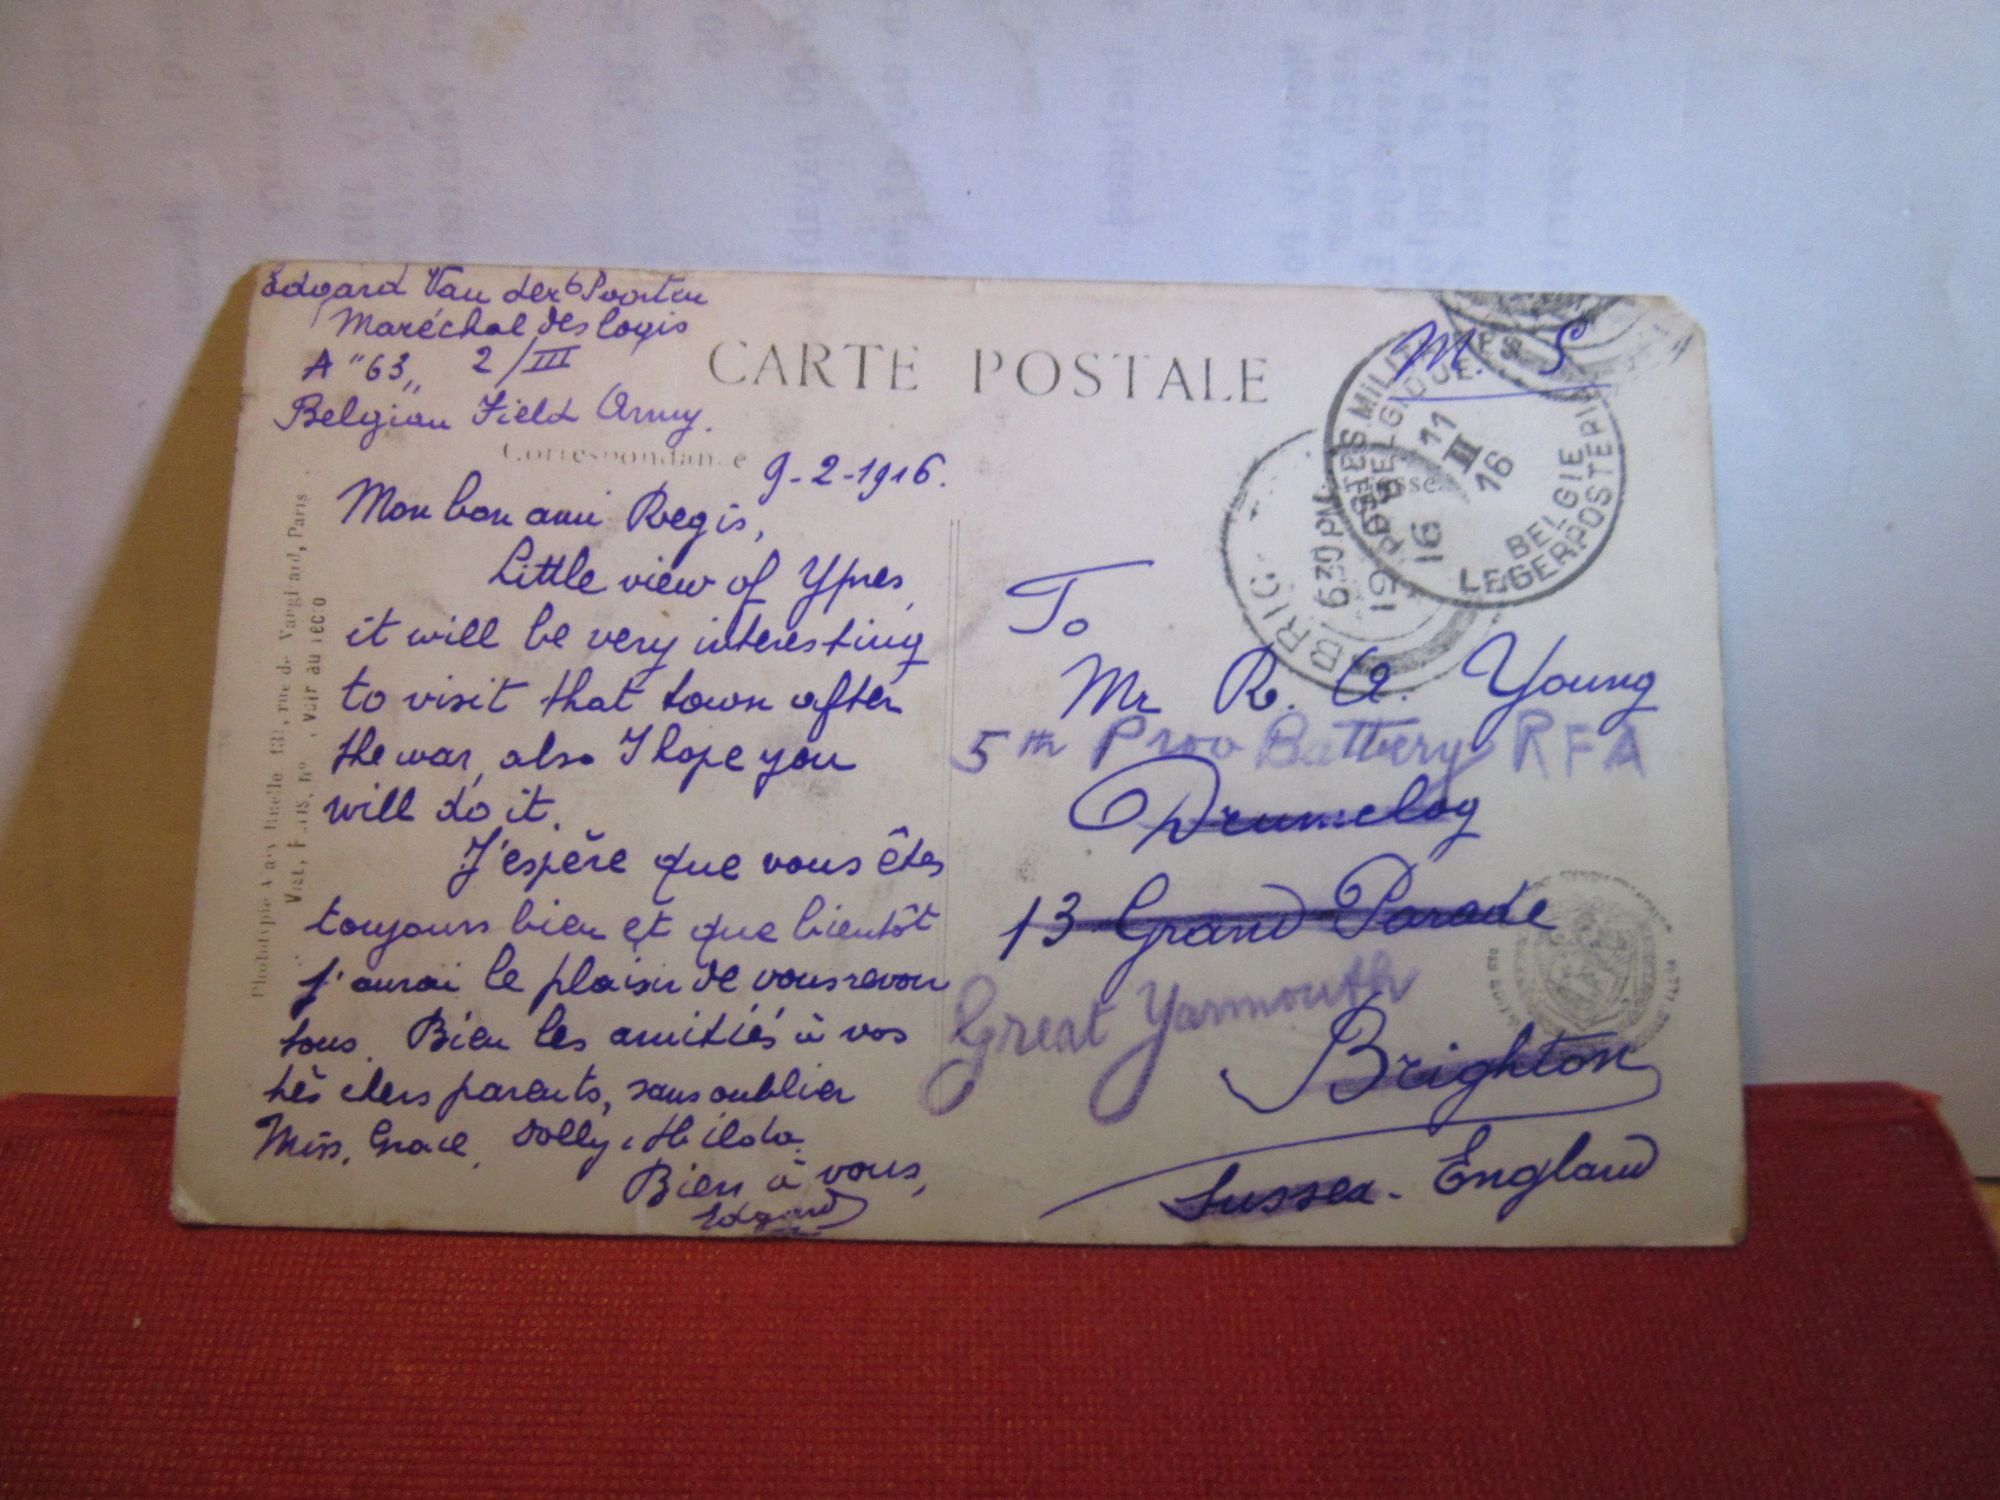 Edgard Van der Poorten
Maréchal des logis
A "63„ 2/III
Belgian Field Army.
CARTE POSTALE
M. S
Correspondance
9-2-1916.
Mon bon ami Regis,
Little view of Ypres,
it will be very interesting
to visit that town after
the war, also I hope you
will do it.
J'espère que vous êtes
toujours bien et que bientôt
j'aurai le plaisir de vous revoir
tous. Bien les amitiés à vos
très chers parents, sans oublier
Miss. Grace, Dolly, Hilda.
Bien à vous,
Edgard
To
Mr R. A. Young
5th Prov Battery RFA
Drumclog
13 Grand Parade
Great Yarmouth
Brighton
Sussex - England
POSTES MILITAIRES
BELGIQUE
11
III
16
BELGIE
LEGERPOSTERIJ
BRIG
6 30 PM
16
Phototypie 131, rue de Vaugirard, Paris
Visé, Paris, no, voir au recto